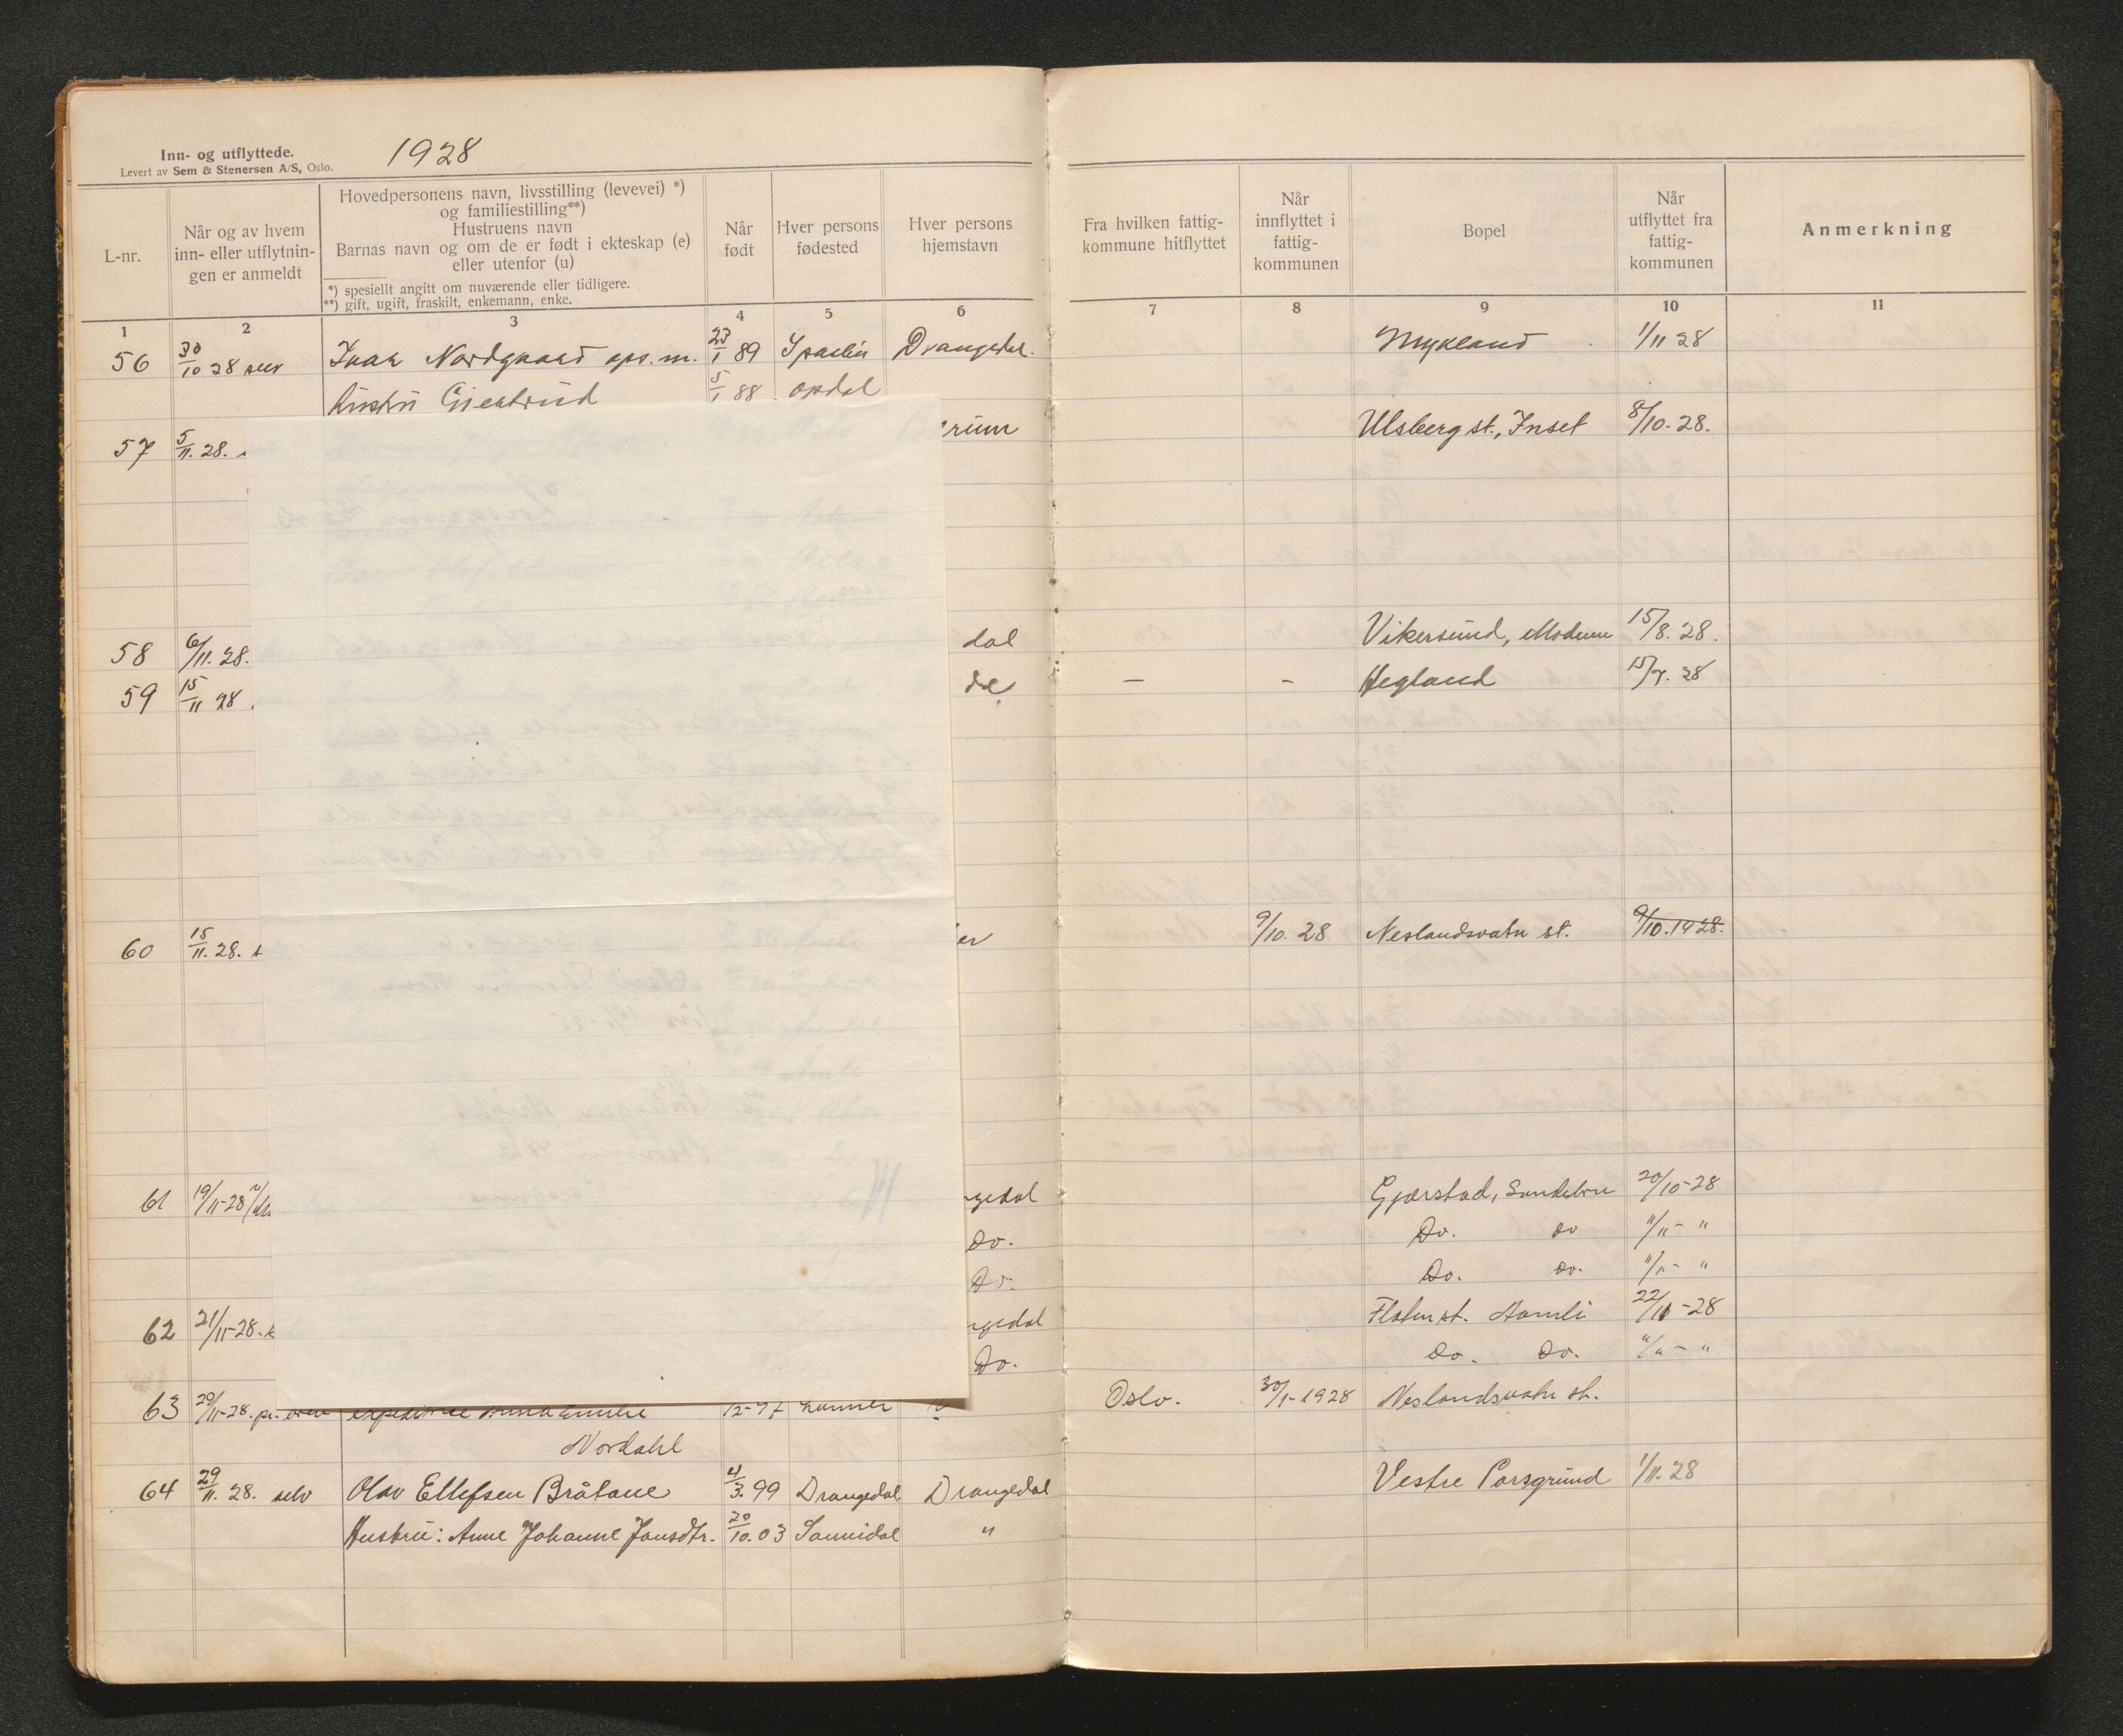 Inn- og utflyttede.
Levert av Sem & Stenersen A/S, Oslo.
1928
L-nr.
Når og av hvem
inn- eller utflytnin-
gen er anmeldt
Hovedpersonens navn, livsstilling (levevei) *)
og familiestilling**)
Hustruens navn
Barnas navn og om de er født i ekteskap (e)
eller utenfor (u)
*) spesiellt angitt om nuværende eller tidligere.
**) gift, ugift, fraskilt, enkemann, enke.
Når
født
Hver persons
fødested
Hver persons
hjemstavn
Fra hvilken fattig-
kommune hitflyttet
Når
innflyttet i
fattig-
kommunen
Bopel
Når
utflyttet fra
fattig-
kommunen
Anmerkning
1 2 3 4 5 6 7 8 9 10 11
56 30/10 28 selv Ivar Nordgaard ops.m. 23/1 89 Drangedal. Mykland 1/11 28
Hustru Gjertrud 5/1 88 Opdal
57 5/11. 28. rum Ulsberg st., Inset 8/10. 28.
58 6/11. 28. dal Vikersund, Modum 15/8. 28.
59 15/11 28 de — - Hegland 15/7. 28
60 15/11. 28. er 9/10. 28 Neslandsvatn st. 9/10. 1928.
61 19/11-28 gedal Gjerstad, Sundebru 20/10-28
Do. Do. do "/11- "
Do. Do. do. "/11- "
62 21/11-28. gedal Flaten st. Aamli 22/10-28
Do. do. do. "/"- "
63 20/11-28. pr. brev expeditrise Anna Emilie 12-97 Lunner Oslo. 30/1-1928 Neslandsvatn st.
Nordahl
64 29/11. 28. selv Olav Ellefsen Bråtane 4/3. 99 Drangedal. Drangedal Vestre Porsgrund 1/11. 28
Hustru: Anne Johanne Jansdtr. 20/10. 03 Sannidal "